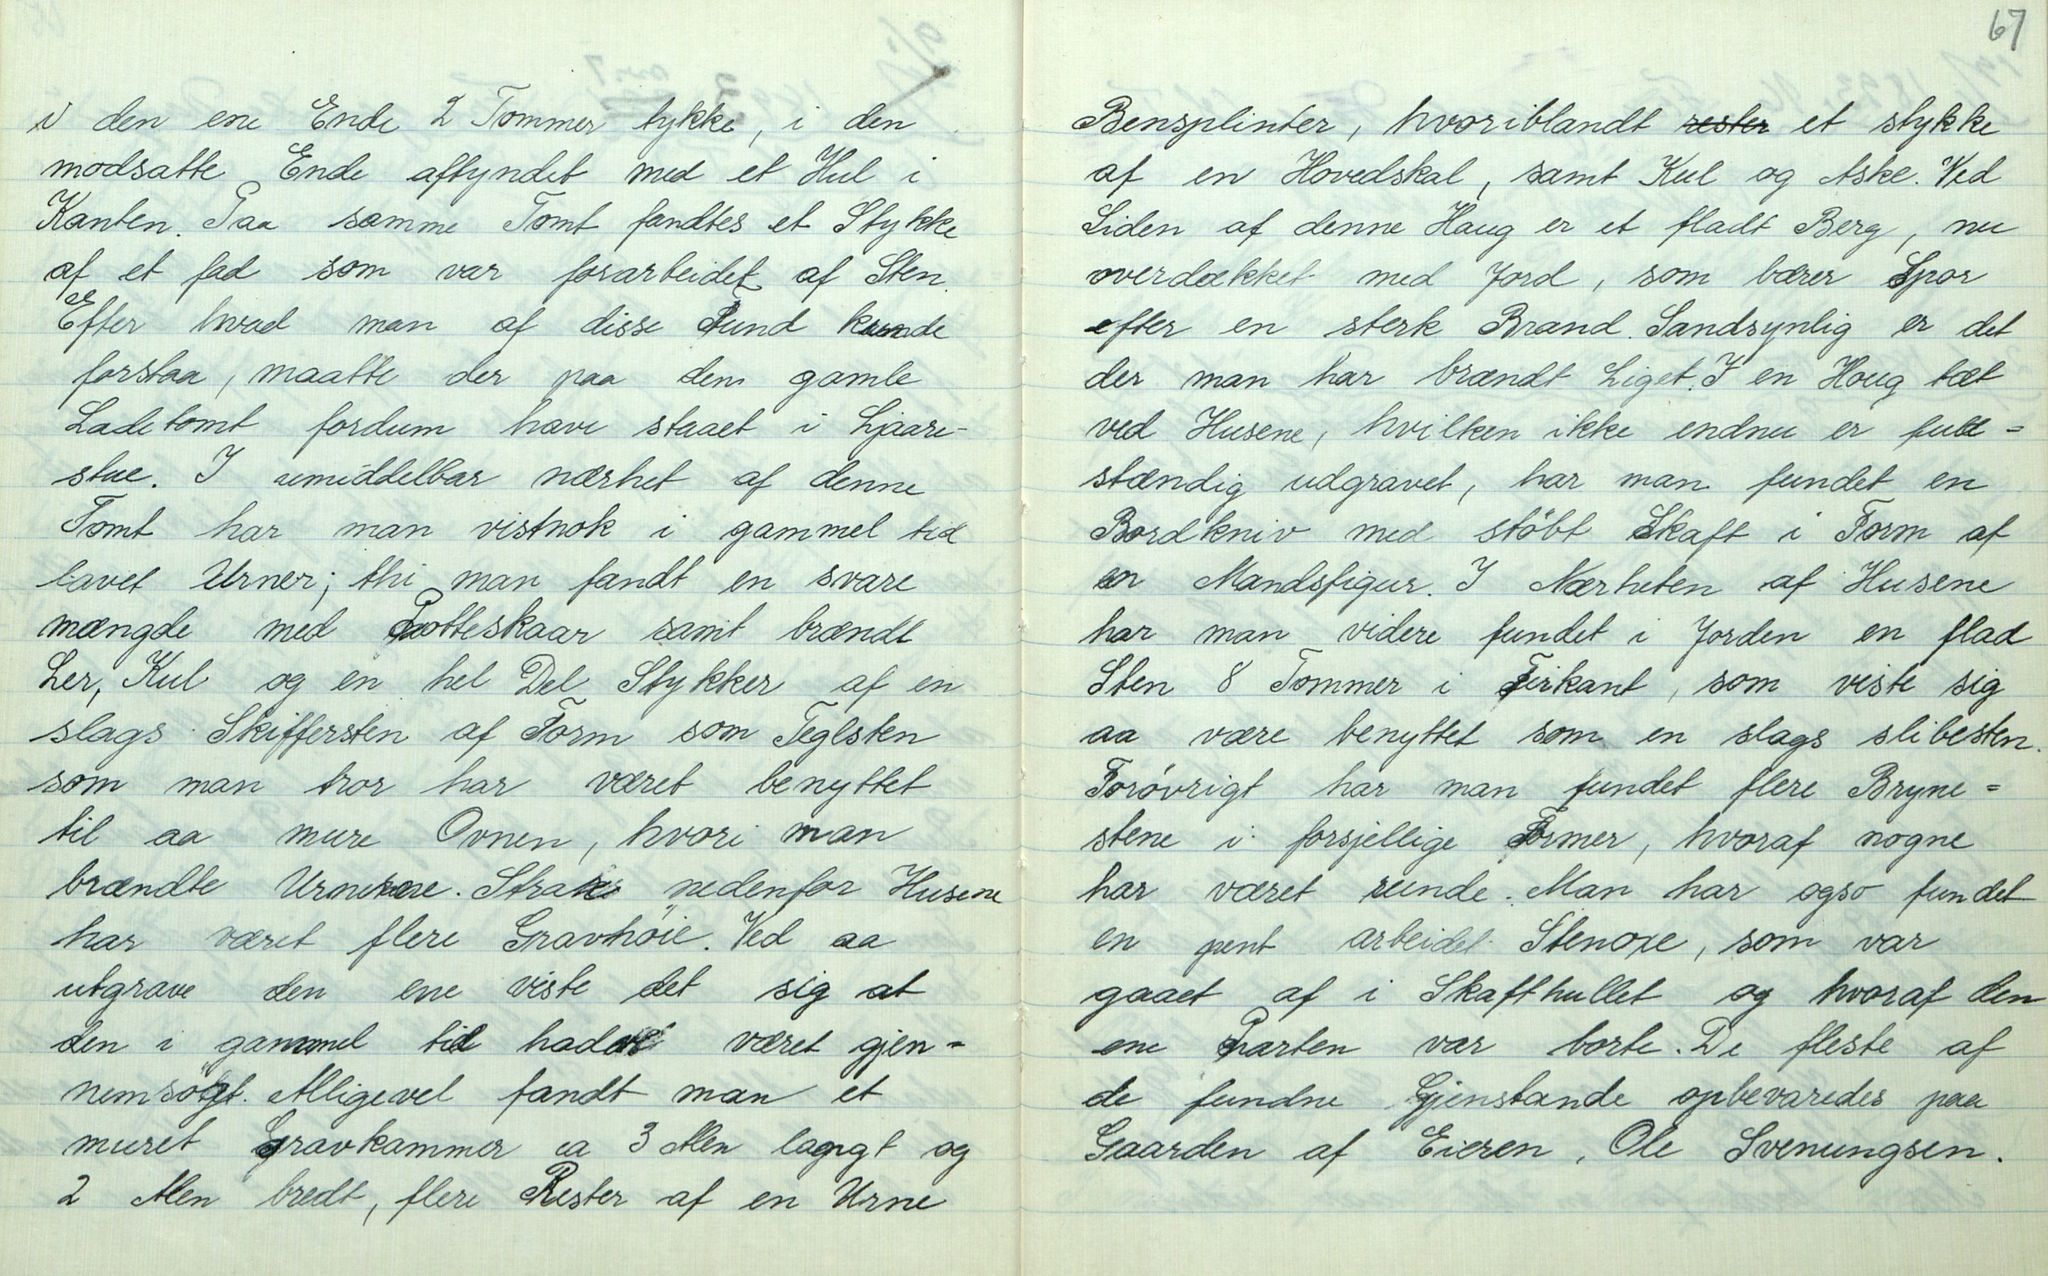 i den ene Ende 2 Tommer tykke, i den
modsatte Ende aftyndet med et Hul i
Kanten. Paa samme Tomt fandtes et Stykke
af et fad som var forarbeidet af Sten.
Efter hvad man af disse Fund kunde
forstaa, maatte der paa den gamle
Ladetomt fordum have staaet i Ljaare-
stue. I umiddelbar nærhet af denne
Tomt har man vistnok i gammel tid
lavet Urner; thi man fandt en svare
mængde med Potteskaar samt brændt
Ler, Kul og en hel Del Stykker af en
slags Skiffersten af Form som Teglsten
som man tror har været benyttet
til aa mure Ovnen, hvori man
brændte Urnerne. Straks nedenfor Husene
har været flere Gravhöie. Ved aa
utgrave den ene viste det sig at
den i gammel tid hadde været gjen-
nemsögt. Alligevel fandt man et
muret Gravkammer ca 3 Alen langt og
2 Alen bredt, flere Rester af en Urne
67
Bensplinter, hvoriblandt rester et stykke
af en Hovedskal, samt Kul og Aske. Ved
Siden af denne Haug er et fladt Berg, nu
overdækket med Jord, som bærer Spor
efter en sterk Brand. Sandsynlig er det
der man har brændt Liget. I en Houg tæt
ved Husene, hvilken ikke endnu er fuld=
stændig udgravet, har man fundet en
Bordkniv med stöbt Skaft i Form af
en Mandsfigur. I Nærheten af Husene
har man videre fundet i Jorden en flad
Sten 8 Tommer i Firkant, som viste sig
aa være benyttet som en slags slibesten.
Forøvrigt har man fundet flere Bryne=
stene i forsjellige Former, hvoraf nogne
har været runde. Man har ogso fundet
en pent arbeidet Stenoxe, som var
gaaet af i Skafthullet og hvoraf den
ene Parten var borte. De fleste af
de fundne Gjenstande opbevaredes paa
Gaarden af Eieren, Ole Svenungsen.